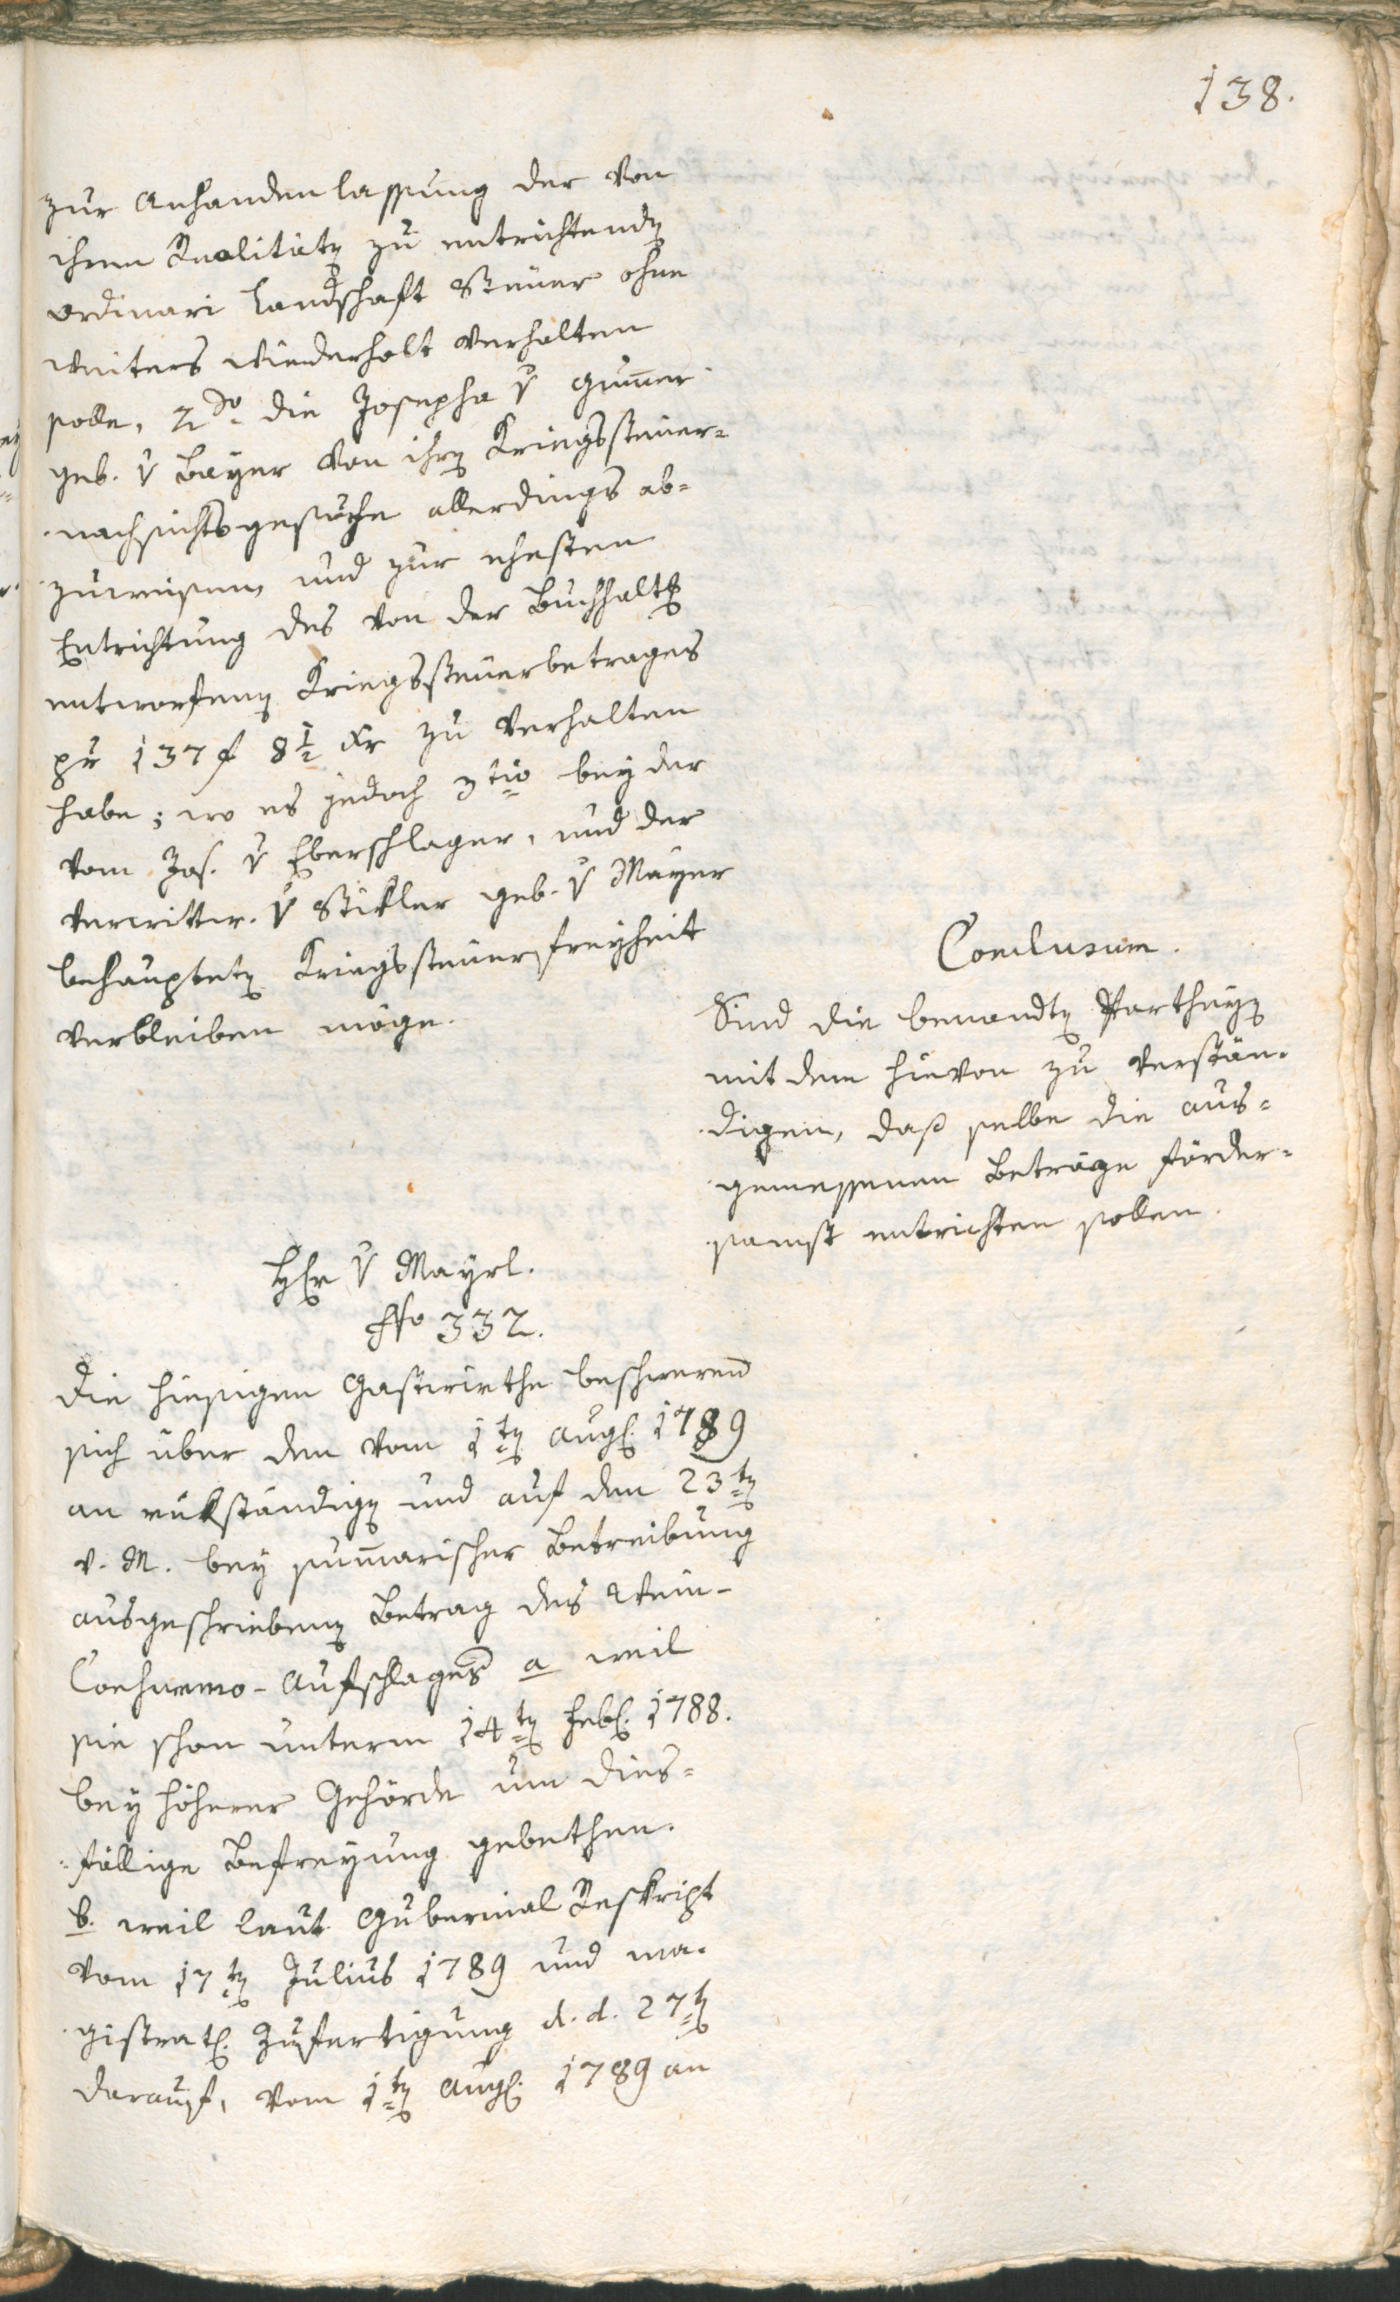 138.
zur Anhandenlassung der von
ihren Realitäten zu entrichtenden
ordinari Landschaft Steuer ohne
weiters wiederholt verhalten
solle, 2do die Josepha v Gummer
geb. v Bayer von ihren Kriegssteuer=
nachsichtsgesuche allerdings ab=
zuweisen, und zur ehesten
Entrichtung des von der Buchhaltg
entworfenen Kriegssteuerbetrages
pr 137 f 8 1/2 xr zu verhalten
habe; wo es jedoch 3tio bey der
vom Jos. v Eberschlager, und der
verwittw. v Stikler geb. v Mayer
behaupteten Kriegssteuerfreyheit
verbleiben möge.
Conclusum.
Sind die benandten Partheyen
mit dem hievon zu verstän-
digen, daß selbe die aus=
gemessenen Beträge förder=
samst entrichten sollen.
Hr v Mayrl.
No 332.
Die hiesigen Gastwirthe beschweren
sich über den vom 1ten Aug. 1789
an rükständigen und auf den 23ten
v. M. bey summarischer Betreibung
ausgeschriebenen Betrag des Wein-
Consumo-Aufschlages a weil
sie schon unterm 14ten Feb. 1788.
bey höherer Gehörde um dies=
fällige Befreyung gebethen.
b. weil laut Gubernial Reskript
vom 17ten Julius 1789 und ma-
gistratl. Zufertigung d. d. 27ten
darauf, vom 1ten Aug. 1789 an